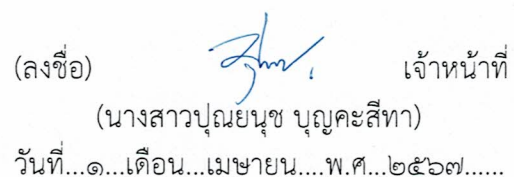 (ลงชื่อ) เจ้าหน้าที่
(นางสาวปุณยนุช บุญคะสีทา)
วันที่...๑...เดือน...เมษายน....พ.ศ...๒๕๖๗......